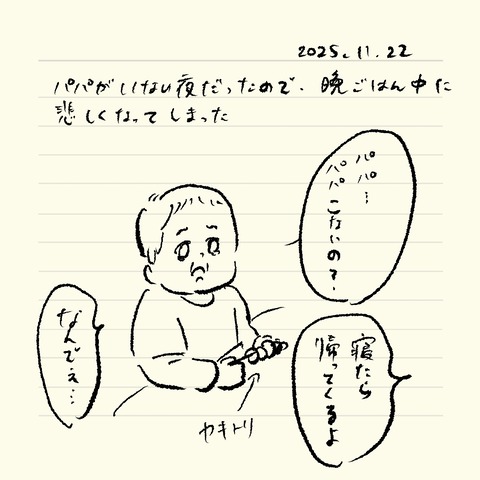 2025.11.22
パパがいない夜だったので、晩ごはん中に
悲しくなってしまった
パパ…
パパこないの？
寝たら
帰ってくるよ
なんでぇ…
ヤキトリ